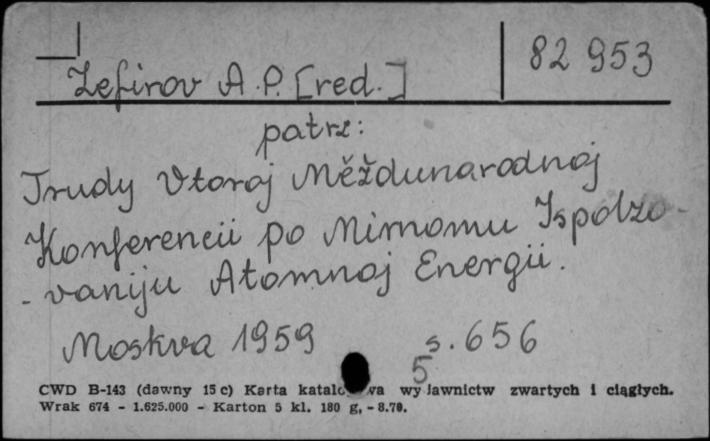 82 953
Zefirov A.P. [red.]
patrz:
Trudy Vtoroj Měždunarodnoj
Konferencii po Mirnomu Ispolzo-
-vaniju Atomnoj Energii.
Moskva 1959 s. 656
5
CWD B-143 (dawny 15 c) Karta wydawnictw zwartych i ciągłych.
Wrak 674 - 1.625.000 - Karton 5 kl. 180 g, - 8.70.